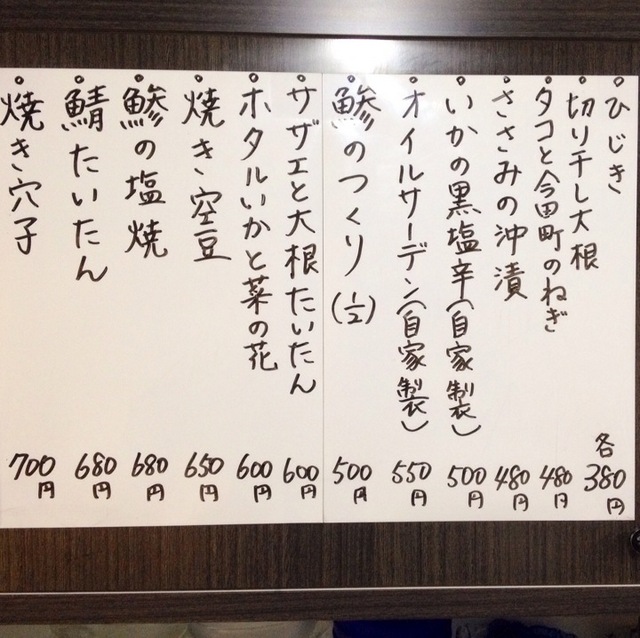 ひじき
切り干し大根
各380円
タコと今田町のねぎ 480円
ささみの沖漬 480円
いかの黒塩辛(自家製) 500円
オイルサーデン(自家製) 550円
鯵のつくり(1/2) 500円
サザエと大根たいたん 600円
ホタルいかと菜の花 600円
焼き空豆 650円
鯵の塩焼 680円
鯖たいたん 680円
焼き穴子 700円